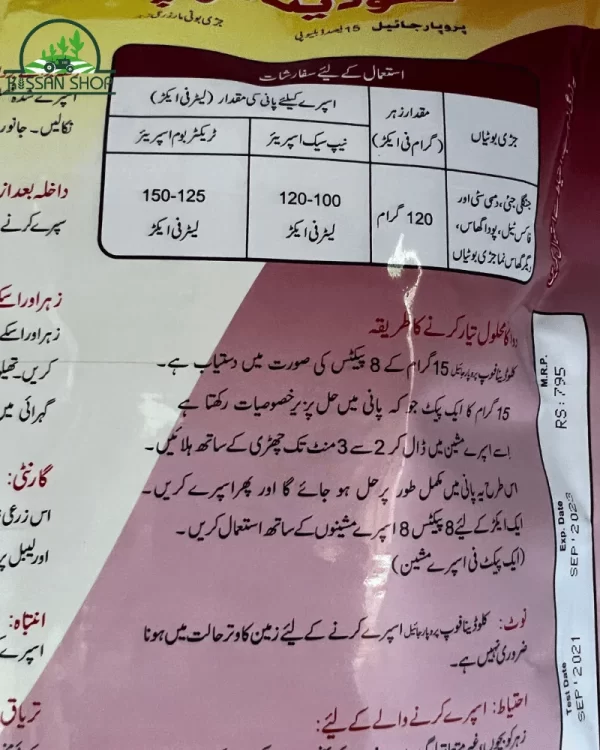 KISSAN SHOP
جڑی بوٹی مار زہر
پروپارجائیل 15 فیصد ڈبلیو پی
استعمال کے لیئے سفارشات
جڑی بوٹیاں
مقدار زہر
(گرام فی ایکڑ)
اسپرے کیلئے پانی کی مقدار (لیٹر فی ایکڑ)
نیپ سیک اسپریئر
ٹریکٹر بوم اسپریئر
جنگلی جئی، دمبی سٹی اور
فاکس ٹیل، پودا گھاس،
دیگر گھاس نما جڑی بوٹیاں
120 گرام
120-100
لیٹر فی ایکڑ
150-125
لیٹر فی ایکڑ
دوا کا محلول تیار کرنے کا طریقہ
کلوڈینافوپ پروپارجائیل 15 گرام کے 8 پیکٹس کی صورت میں دستیاب ہے۔
15 گرام کا ایک پیکٹ جو کہ پانی میں حل پزیر خصوصیات رکھتا ہے
اسے اسپرے مشین میں ڈال کر 2 سے 3 منٹ تک چھڑی کے ساتھ ہلائیں۔
اس طرح یہ پانی میں مکمل طور پر حل ہو جائے گا اور پھر اسپرے کریں۔
ایک ایکڑ کے لئے 8 پیکٹس 8 اسپرے مشینوں کے ساتھ استعمال کریں۔
(ایک پیکٹ فی اسپرے مشین)
نوٹ: کلوڈینافوپ پروپارجائیل اسپرے کرنے کے لیئے زمین کا وتر حالت میں ہونا
ضروری نہیں ہے۔
احتیاط: اسپرے کرنے والے کے لیئے:
زہر کو بچوں، غیر متعلقہ
M.R.P.
RS:795
Exp. Date
SEP'2023
Test Date
SEP'2021
اسپرے شدہ
نکالیں۔ جانور
داخلہ بعد از
سپرے کرنے
زہر اور اسکے
زہر اور اسکے
کریں۔ تھیلو
گہرائی میں
گارنٹی:
اس زرعی
اور لیبل پر
انتباہ:
اسپرے
تریاق